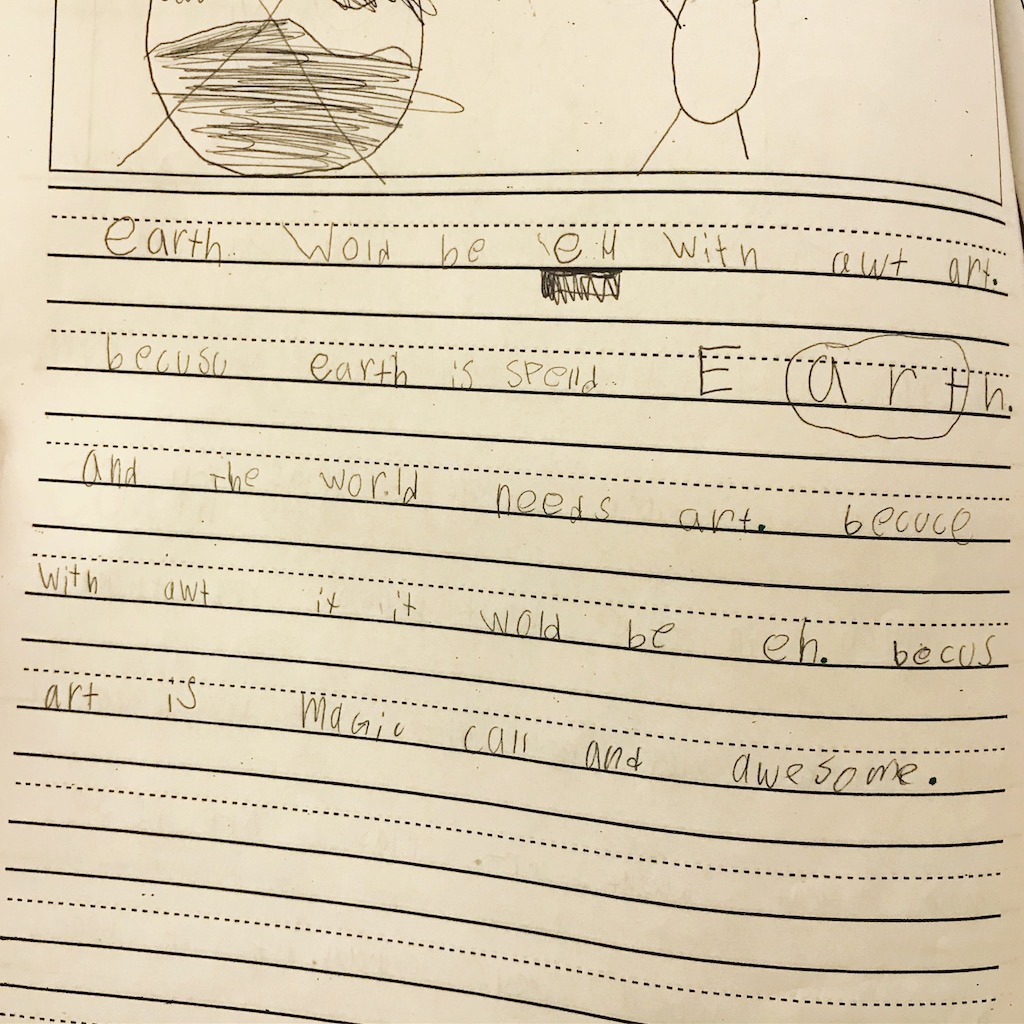 earth wold be eH with awt art.
becuse earth is spelld E arth.
and the world needs art. becuce
with awt it it wold be eh. becus
art is Magic call and awesome.